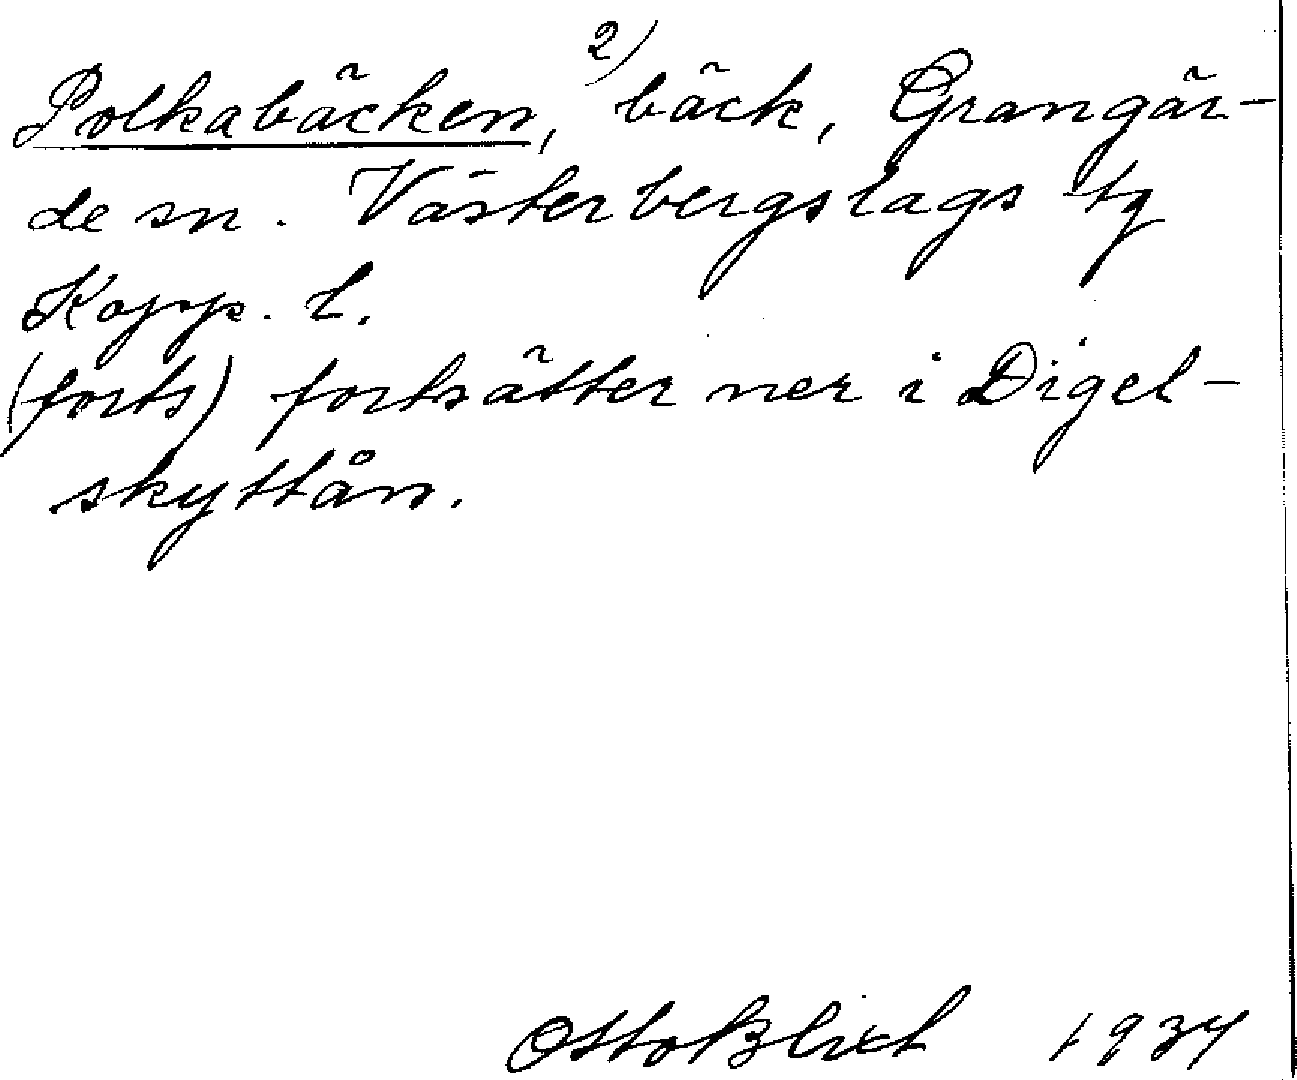 Polkabäcken, 2) bäck, Grangär-
de sn. Västerbergslags tg
Kopp. l.
(forts) fortsätter ner i Digel-
skyttån.
Otto Blixt 1934